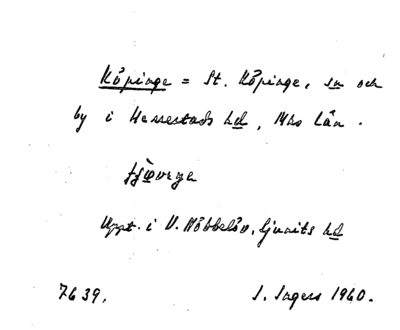 Köpinge = St. Köpinge, sn och
by i Herrestads hd, Mhs Län.
Uppt. i V. Nöbbelöv, Ljunits hd
7639. I. Ingers 1960.